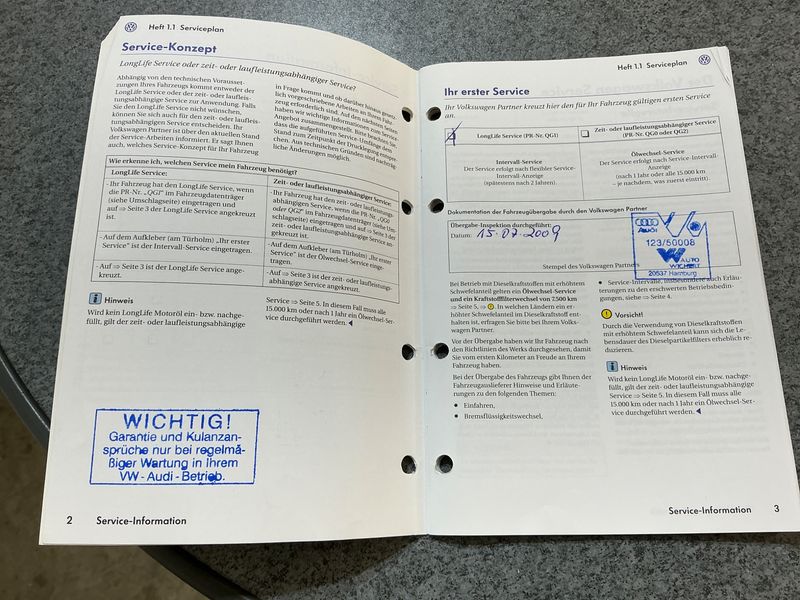 Heft 1.1 Serviceplan
Service-Konzept
LongLife Service oder zeit- oder laufleistungsabhängiger Service?
Abhängig von den technischen Vorausset-
zungen Ihres Fahrzeugs kommt entweder der
LongLife Service oder der zeit- oder laufleis-
tungsabhängige Service zur Anwendung. Falls
Sie den LongLife Service nicht wünschen,
können Sie sich auch für den zeit- oder laufleis-
tungsabhängigen Service entscheiden. Ihr
Volkswagen Partner ist über den aktuellen Stand
der Service-Arbeiten informiert. Er sagt Ihnen
auch, welches Service-Konzept für Ihr Fahrzeug
in Frage kommt und ob darüber hinaus gesetz-
lich vorgeschriebene Arbeiten an Ihrem Fahr-
zeug erforderlich sind. Auf den nächsten Seiten
haben wir wichtige Informationen zum Service-
Angebot zusammengestellt. Bitte beachten Sie,
dass die aufgeführten Service-Umfänge dem
Stand zum Zeitpunkt der Drucklegung entspre-
chen. Aus technischen Gründen sind nachträg-
liche Änderungen möglich.
Wie erkenne ich, welchen Service mein Fahrzeug benötigt?
LongLife Service:
Zeit- oder laufleistungsabhängiger Service:
- Ihr Fahrzeug hat den LongLife Service, wenn
die PR-Nr. „QG1" im Fahrzeugdatenträger
(siehe Umschlagseite) eingetragen und
auf ⇒ Seite 3 der LongLife Service angekreuzt
ist.
- Ihr Fahrzeug hat den zeit- oder laufleistungs-
abhängigen Service, wenn die PR-Nr. „QG0
oder QG2" im Fahrzeugdatenträger (siehe Um-
schlagseite) eingetragen und auf ⇒ Seite 3 der
zeit- oder laufleistungsabhängige Service an-
gekreuzt ist.
- Auf dem Aufkleber (am Türholm) „Ihr erster
Service" ist der Intervall-Service eingetragen.
- Auf dem Aufkleber (am Türholm) „Ihr erster
Service" ist der Ölwechsel-Service einge-
tragen.
- Auf ⇒ Seite 3 ist der LongLife Service ange-
kreuzt.
- Auf ⇒ Seite 3 ist der zeit- oder laufleistungs-
abhängige Service angekreuzt.
Hinweis
Wird kein LongLife Motoröl ein- bzw. nachge-
füllt, gilt der zeit- oder laufleistungsabhängige
Service ⇒ Seite 5. In diesem Fall muss alle
15.000 km oder nach 1 Jahr ein Ölwechsel-Ser-
vice durchgeführt werden.
WICHTIG!
Garantie und Kulanzan-
sprüche nur bei regelmä-
ßiger Wartung in ihrem
VW-Audi-Betrieb.
2 Service-Information
Heft 1.1 Serviceplan
Ihr erster Service
Ihr Volkswagen Partner kreuzt hier den für Ihr Fahrzeug gültigen ersten Service
an.
LongLife Service (PR-Nr. QG1)
Zeit- oder laufleistungsabhängiger Service
(PR-Nr. QG0 oder QG2)
Intervall-Service
Der Service erfolgt nach flexibler Service
Intervall-Anzeige
(spätestens nach 2 Jahren).
Ölwechsel-Service
Der Service erfolgt nach Service-Intervall-
Anzeige
(nach 1 Jahr oder alle 15.000 km
– je nachdem, was zuerst eintritt).
Dokumentation der Fahrzeugübergabe durch den Volkswagen Partner
Übergabe-Inspektion durchgeführt:
Datum: 15.07.2009
Audi
123/50008
AUTO
WICHERT
20537 Hamburg
Stempel des Volkswagen Partners
Bei Betrieb mit Dieselkraftstoffen mit erhöhtem
Schwefelanteil gelten ein Ölwechsel-Service
und ein Kraftstofffilterwechsel von 7.500 km
⇒ Seite 5, ⇒ In welchen Ländern ein er-
höhter Schwefelanteil im Dieselkraftstoff ent-
halten ist, erfragen Sie bitte bei Ihrem Volks-
wagen Partner.
Vor der Übergabe haben wir Ihr Fahrzeug nach
den Richtlinien des Werks durchgesehen, damit
Sie vom ersten Kilometer an Freude an Ihrem
Fahrzeug haben.
Bei der Übergabe des Fahrzeugs gibt Ihnen der
Fahrzeugauslieferer Hinweise und Erläute-
rungen zu den folgenden Themen:
• Einfahren,
• Bremsflüssigkeitswechsel,
• Service-Intervalle, insbesondere auch Erläu-
terungen zu den erschwerten Betriebsbedin-
gungen, siehe ⇒ Seite 4.
Vorsicht!
Durch die Verwendung von Dieselkraftstoffen
mit erhöhtem Schwefelanteil kann sich die Le-
bensdauer des Dieselpartikelfilters erheblich re-
duzieren.
Hinweis
Wird kein LongLife Motoröl ein- bzw. nachge-
füllt, gilt der zeit- oder laufleistungsabhängige
Service ⇒ Seite 5. In diesem Fall muss alle
15.000 km oder nach 1 Jahr ein Ölwechsel-Ser-
vice durchgeführt werden.
Service-Information 3